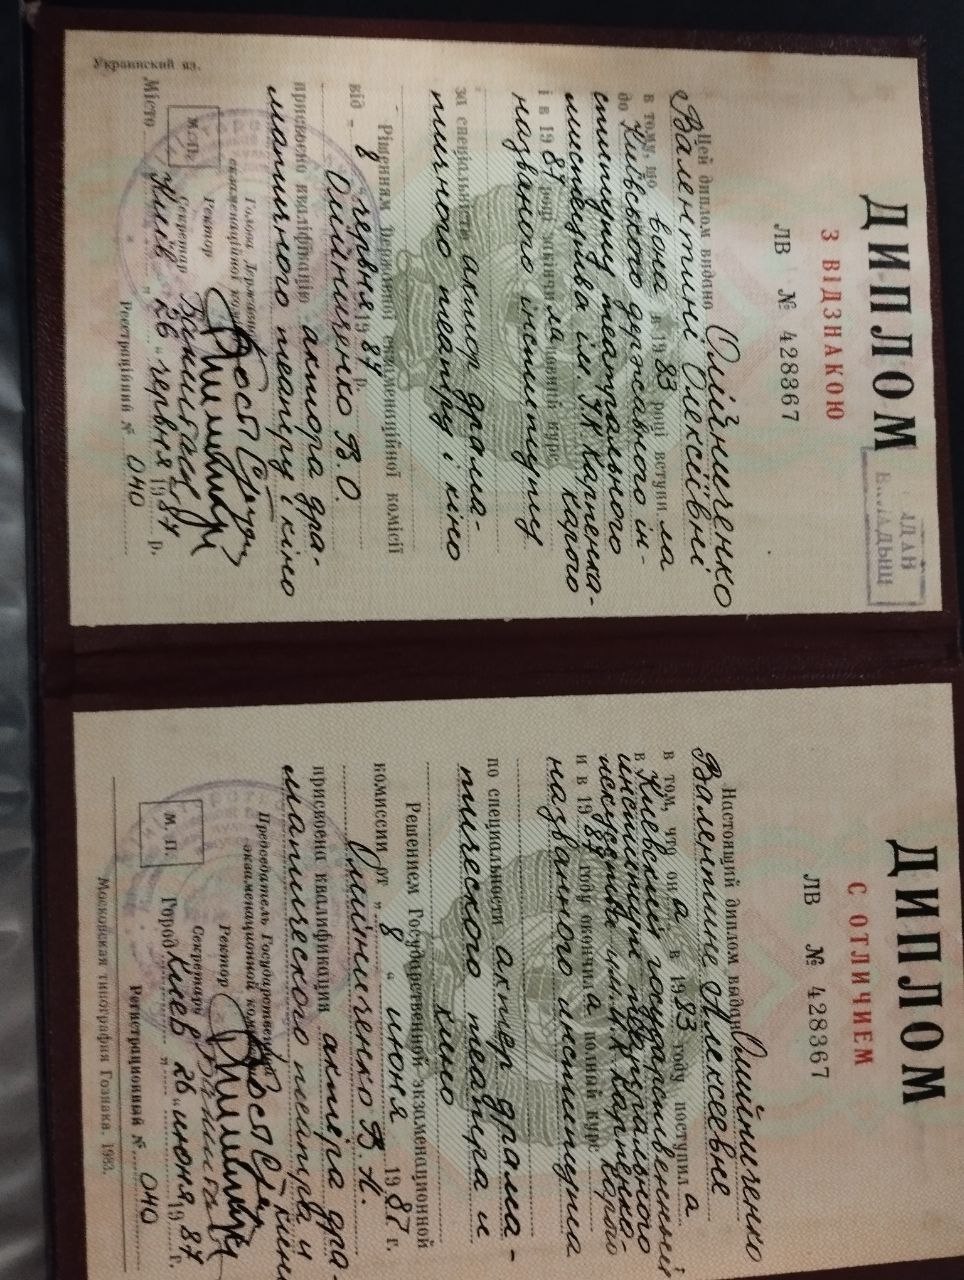 ДИПЛОМ
З ВІДЗНАКОЮ
ЛВ № 428367
Цей диплом видано Олійниченко
Валентині Олексіївні
в тому, що вона в 1983 році вступила
до Київського державного ін-
ституту театрального
мистецтва ім. І.К. Карпенка-
Карого
і в 1987 році закінчила повний курс
названого інституту
за спеціальністю актор драма-
тичного театру і кіно
Рішенням Державної екзаменаційної комісії
від „8" червня 1987 р.
Олійниченко В.О.
присвоєно кваліфікацію актора дра-
матичного театру і кіно
Голова Державної
екзаменаційної
Ректор
Секретар
М.П.
Місто Київ „26" червня 1987 р.
Реєстраційний № 040
Украинский яз.
ДИПЛОМ
С ОТЛИЧИЕМ
ЛВ № 428367
Настоящий диплом выдан Олийниченко
Валентине Алексеевне
в том, что она в 1983 году поступила
в Киевский государственный
институт театрального
искусства им. И.К. Карпенко-
Карого
и в 1987 году окончила полный курс
названного института
по специальности актер драма-
тического театра и
кино
Решением Государственной экзаменационной
комиссии от „8" июня 1987 г.
Олийниченко В.А.
присвоена квалификация актёра дра-
матического театра и
кино
Председатель Государственной
экзаменационной
Ректор
Секретарь
М. П.
Город Киев „26" июня 1987 г.
Регистрационный № 040
Московская типография Гознака. 1983.